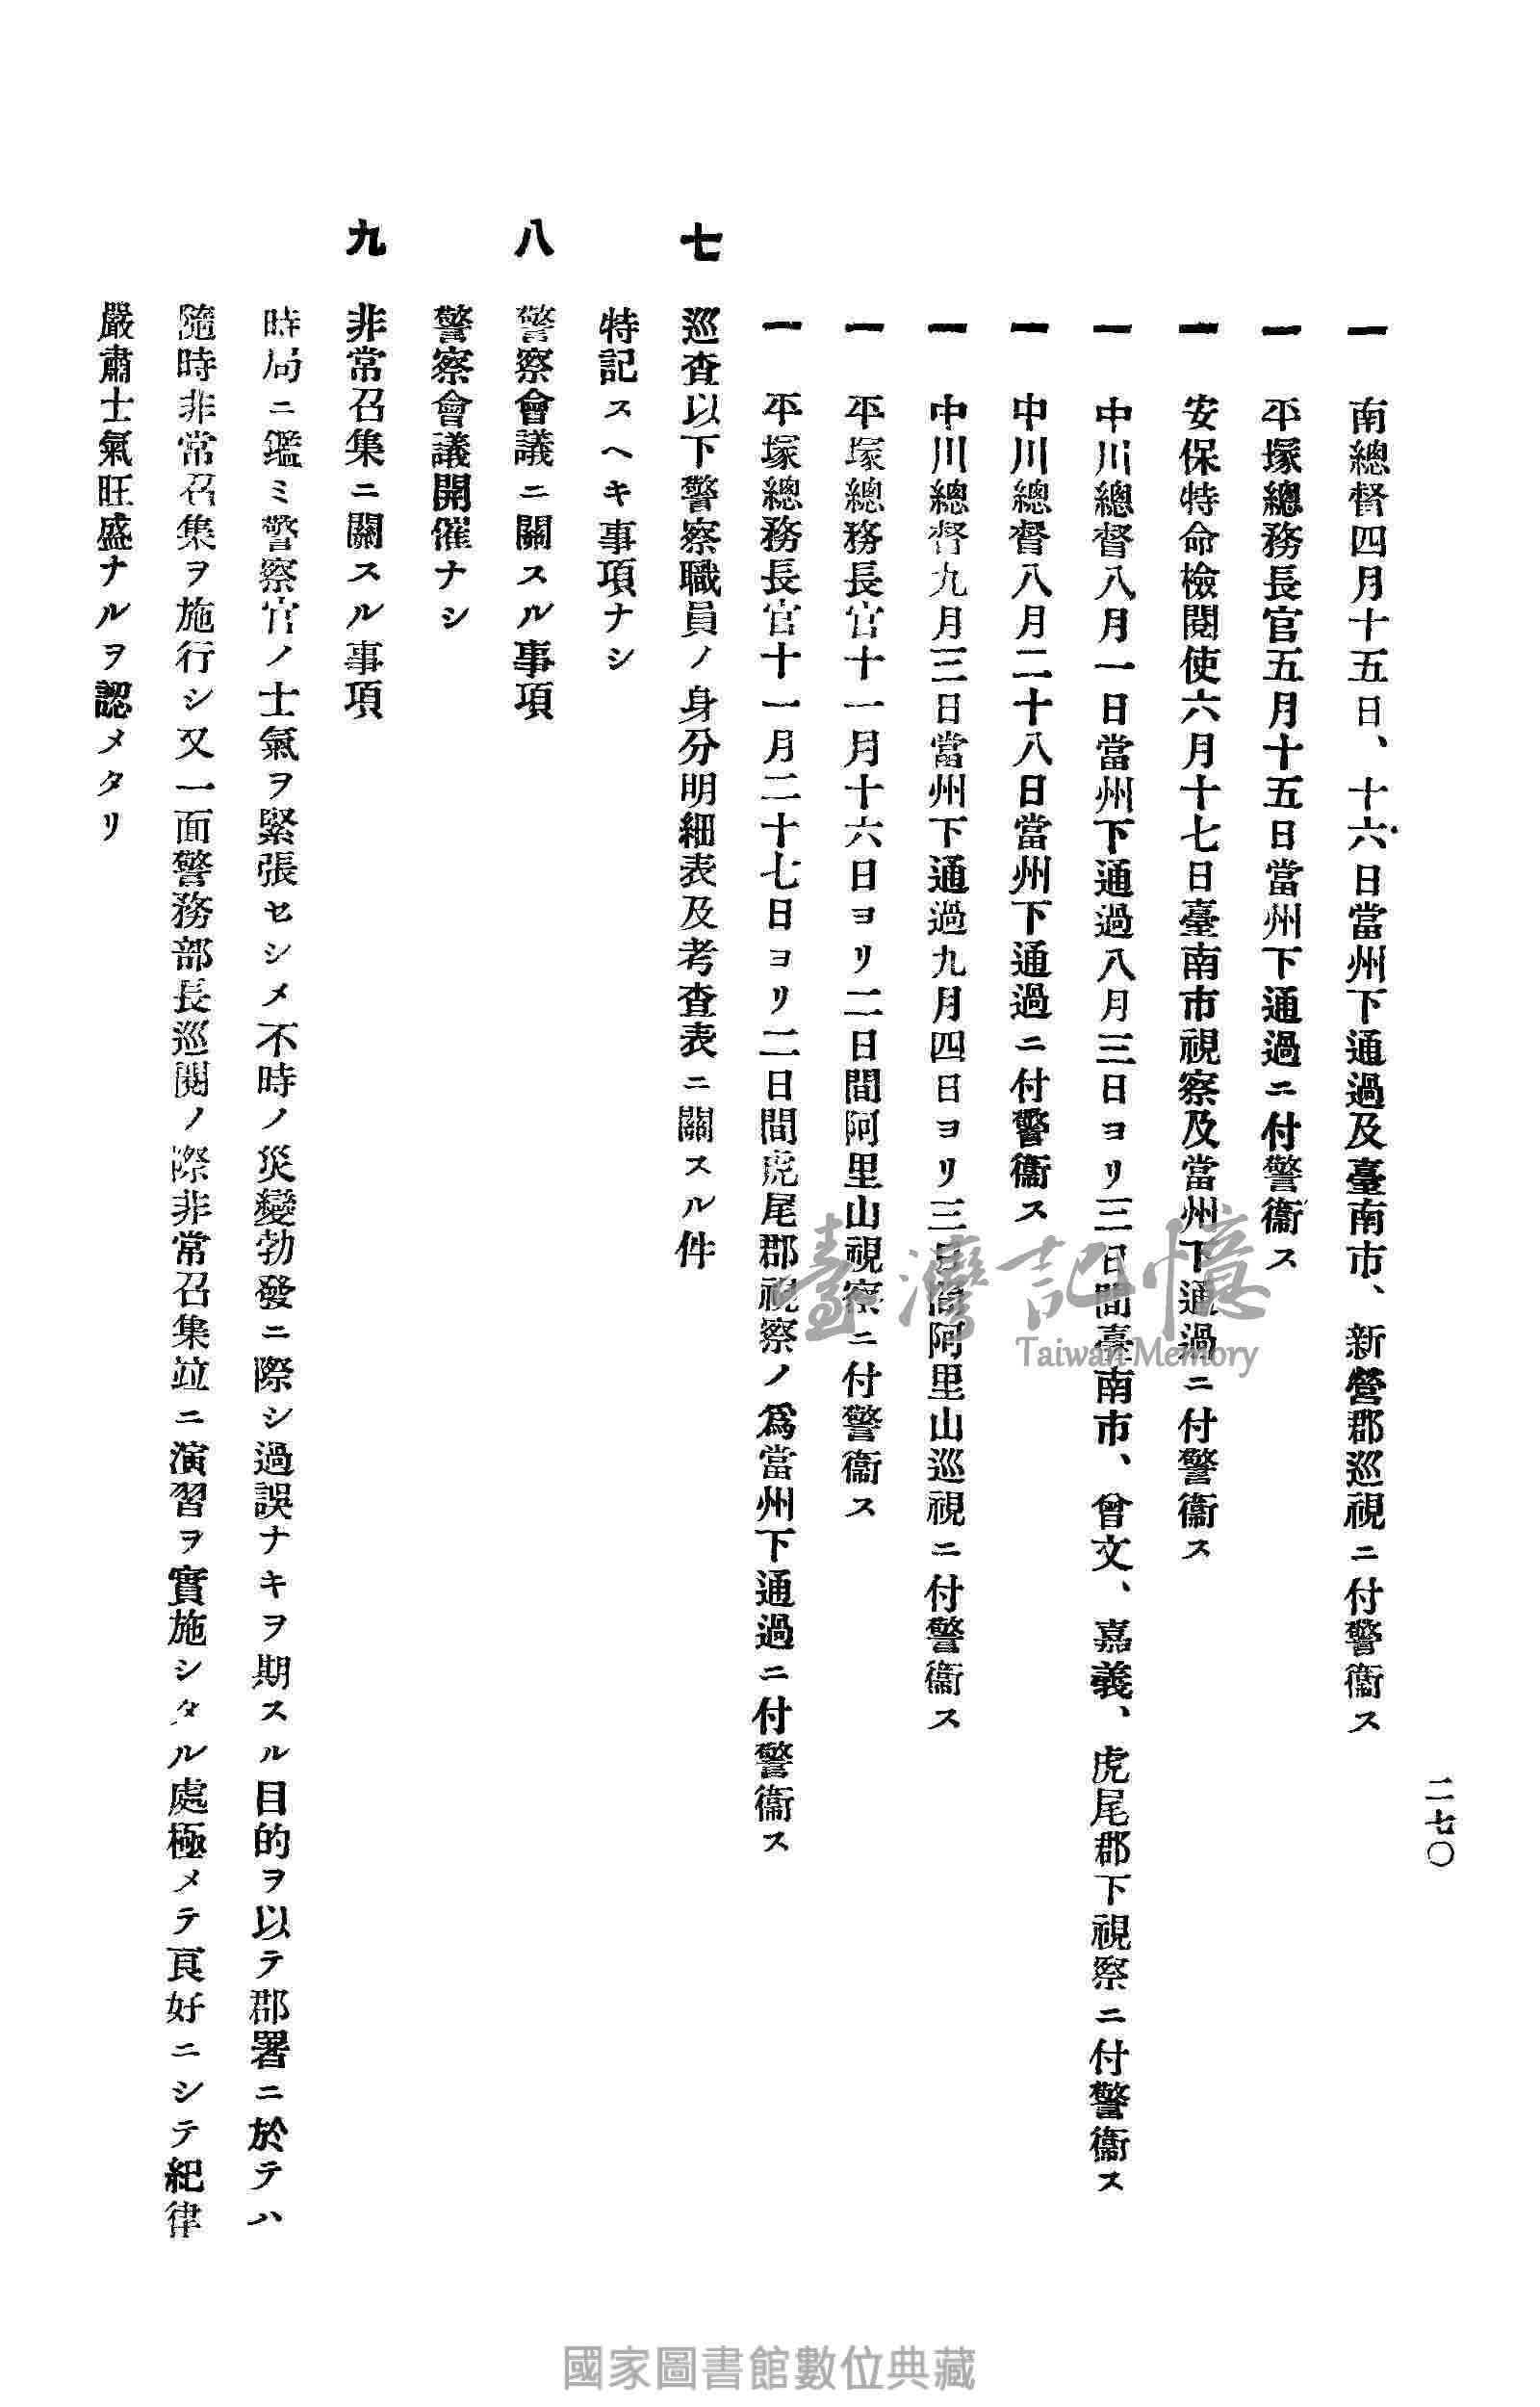 二七〇
一　南總督四月十五日、十六日當州下通過及臺南市、新營郡巡視ニ付警衞ス
一　平塚總務長官五月十五日當州下通過ニ付警衞ス
一　安保特命檢閱使六月十七日臺南市視察及當州下通過ニ付警衞ス
一　中川總督八月一日當州下通過八月三日ヨリ三日間臺南市、曾文、嘉義、虎尾郡下視察ニ付警衞ス
一　中川總督八月二十八日當州下通過ニ付警衞ス
一　中川總督九月三日當州下通過九月四日ヨリ三日間阿里山巡視ニ付警衞ス
一　平塚總務長官十一月十六日ヨリ二日間阿里山視察ニ付警衞ス
一　平塚總務長官十一月二十七日ヨリ二日間虎尾郡視察ノ爲當州下通過ニ付警衞ス
七　巡査以下警察職員ノ身分明細表及考査表ニ關スル件
特記スヘキ事項ナシ
八　警察會議ニ關スル事項
警察會議開催ナシ
九　非常召集ニ關スル事項
時局ニ鑑ミ警察官ノ士氣ヲ緊張セシメ不時ノ災變勃發ニ際シ過誤ナキヲ期スル目的ヲ以テ郡署ニ於テハ
隨時非常召集ヲ施行シ又一面警務部長巡閱ノ際非常召集竝ニ演習ヲ實施シタル處極メテ良好ニシテ紀律
嚴肅士氣旺盛ナルヲ認メタリ
臺灣記憶
Taiwan Memory
國家圖書館數位典藏